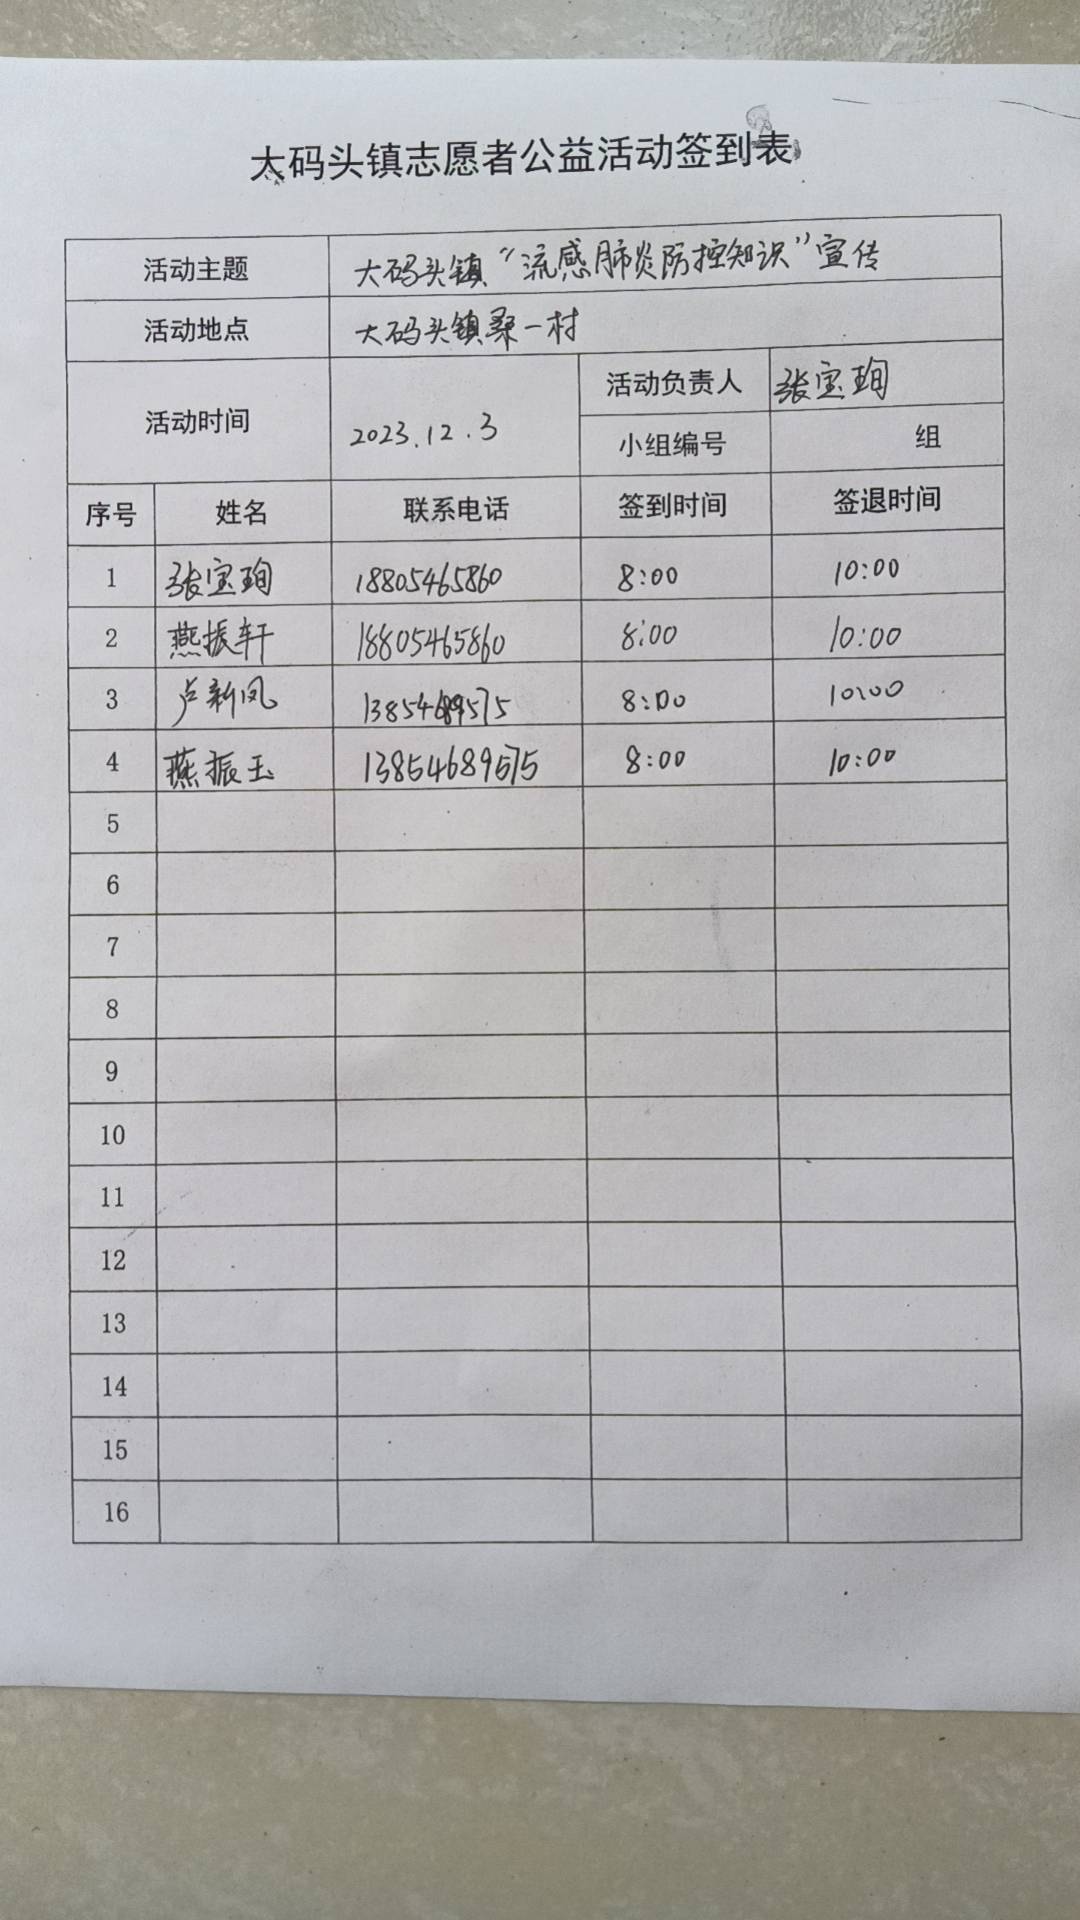 大码头镇志愿者公益活动签到表
活动主题 大码头镇“流感肺炎防控知识”宣传
活动地点 大码头镇桑一村
活动时间 2023.12.3 活动负责人 张宝珣
小组编号 组
序号 姓名 联系电话 签到时间 签退时间
1 张宝珣 18805465860 8:00 10:00
2 燕振轩 18805465860 8:00 10:00
3 卢新凤 13854689575 8:00 10:00
4 燕振玉 13854689575 8:00 10:00
5
6
7
8
9
10
11
12
13
14
15
16